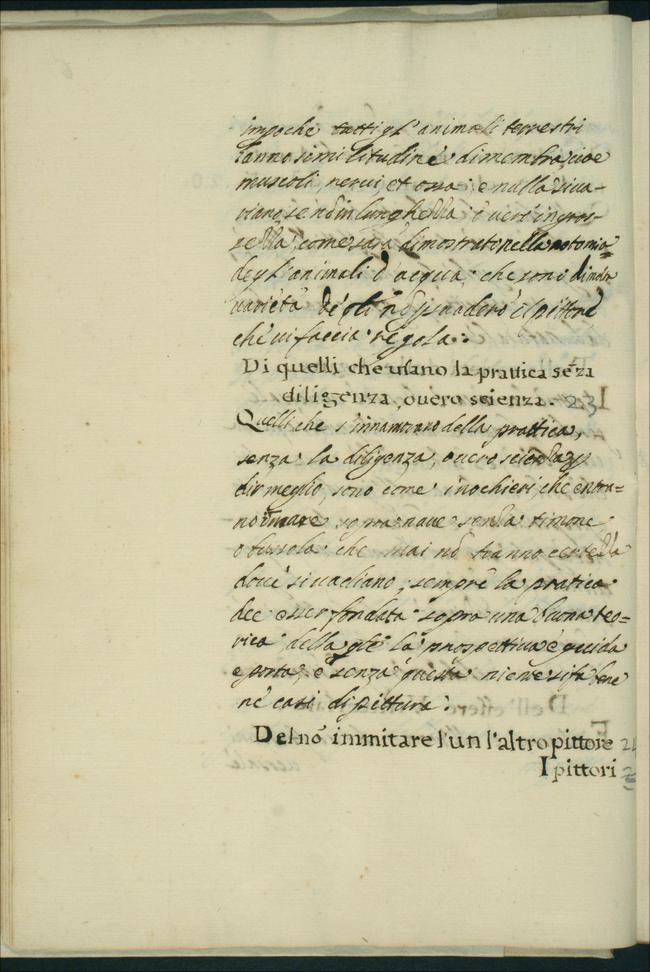 impoche tutti gl' animali terrestri
hanno similitudine di membra, cioe
muscoli, nervi, et ossa; e nulla si va-
riano se nõ in lunghezza, o vero in gros-
sezza, come sarà dimostrato nella notomia
degl' animali d'acqua, che sono di molta
varietà
che vi faccia regola.:
Di quelli che usano la prattica sẽza
diligenza, overo scienza. 23
Quelli che s'innamorano della prattica,
senza la diligenza, overo scienza
dir meglio, sono come i nochieri, che entra=
no in mare sopra nave senza timone
o bussola che mai nõ hanno certezza
dove si vadiano, sempre la pratica
dee esser fondata sopra una buona teo=
rica della qle la prospettiva è guida
e porta, e senza questa niente si fa bene
ne casi di pittura:
Del nõ immitare l'un l'altro pittore 24
I pittori